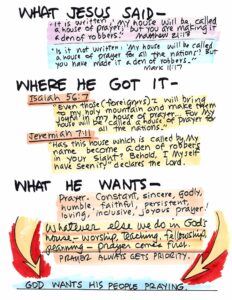 WHAT JESUS SAID—
"It is written, 'My house will be called
a house of prayer,' but you are making it
a den of robbers." Matthew 21:13
"Is it not written: 'My house will be called
a house of prayer for all the nations'? But
you have made it a den of robbers."
Mark 11:17
WHERE HE GOT IT—
Isaiah 56:7
"Even those (foreigners) I will bring
to my holy mountain and make them
joyful in my house of prayer. For My
house will be called a house of prayer for
all the nations."
Jeremiah 7:11
"Has this house which is called by My
name become a den of robbers
in your sight? Behold, I Myself
have seen it," declares the Lord.
WHAT HE WANTS—
Prayer. Constant, sincere, godly,
humble, faithful, persistent,
loving, inclusive, joyous prayer!
Whatever else we do in God's
house—worship, teaching, fellowship,
learning—prayer comes first.
PRAYER ALWAYS GETS PRIORITY.
GOD WANTS HIS PEOPLE PRAYING.